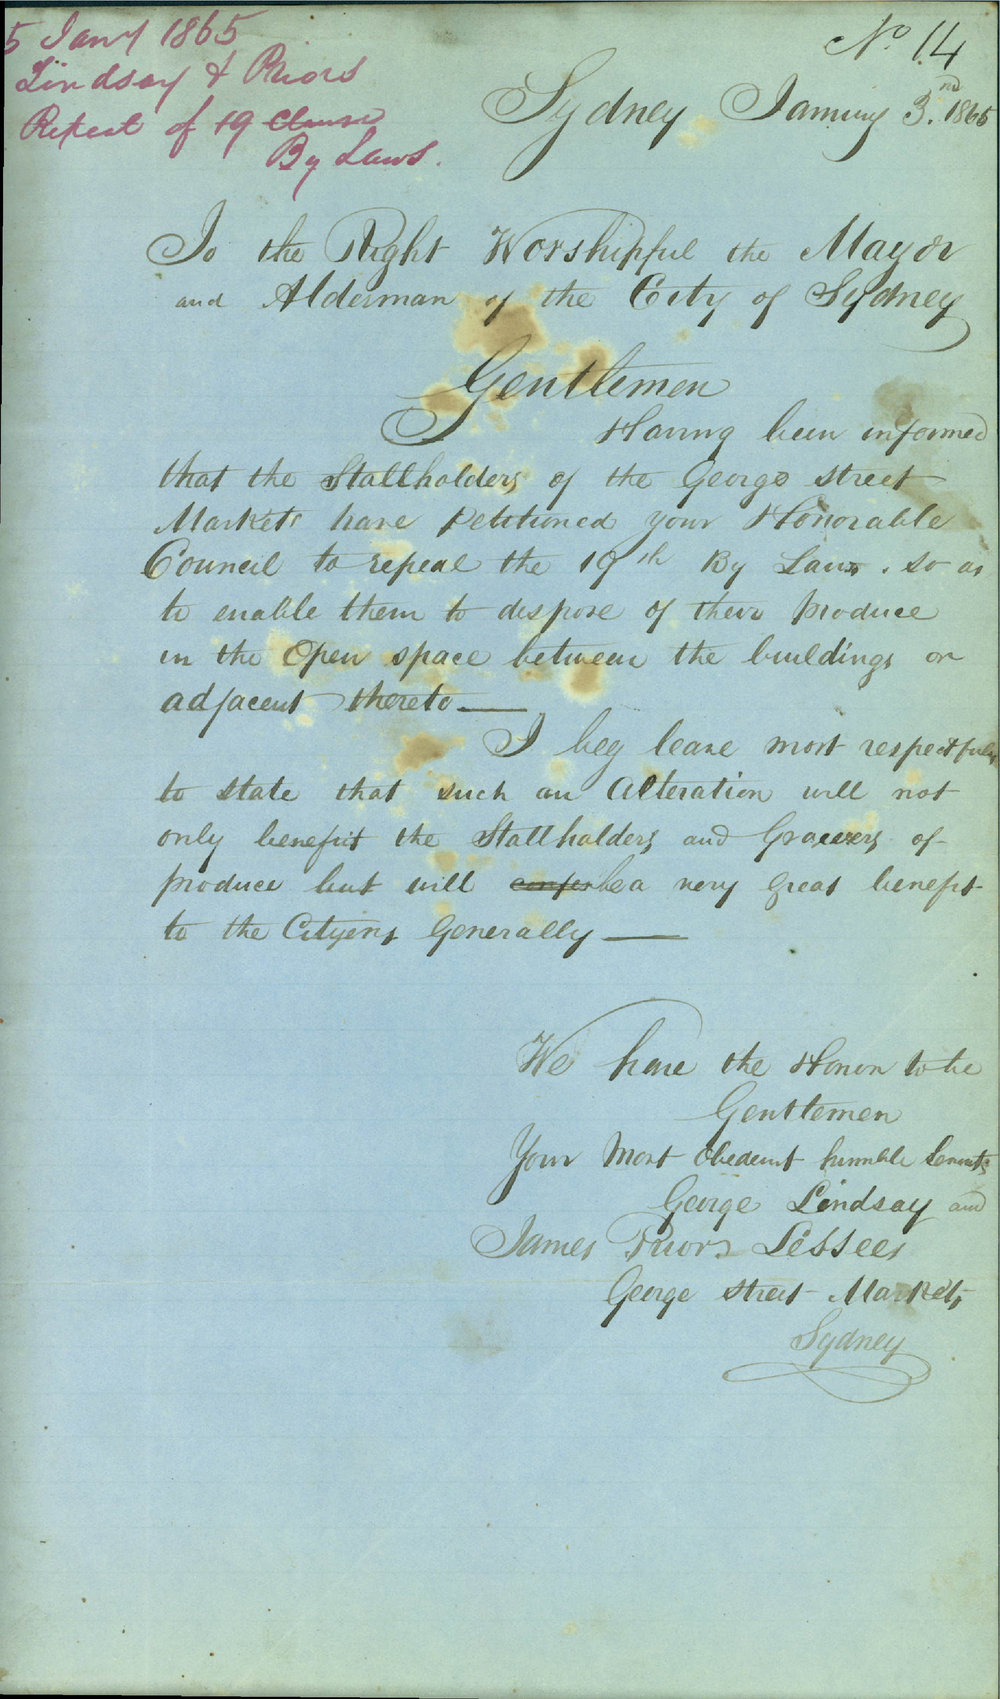 5 Jany 1865
Lindsay & Priors
Repeal of 19 Clause
By Laws.
No. 14
Sydney January 3.nd 1865
To the Right Worshipful the Mayor
and Alderman of the City of Sydney
Gentlemen
Having been informed
that the Stallholders of the George street
Markets have petitioned your Honorable
Council to repeal the 19th By Laws. so as
to enable them to dispose of their produce
in the Open space between the buildings or
adjacent thereto —
I beg leave most respectfully
to state that such an Alteration will not
only benefit the Stallholders and Growers of
produce but will confer be a very great benefit
to the Citizens Generally —
We have the Honor to be
Gentlemen
Your Most Obedient humble Servants
George Lindsay and
James Priors Lessees
George Street Markets
Sydney